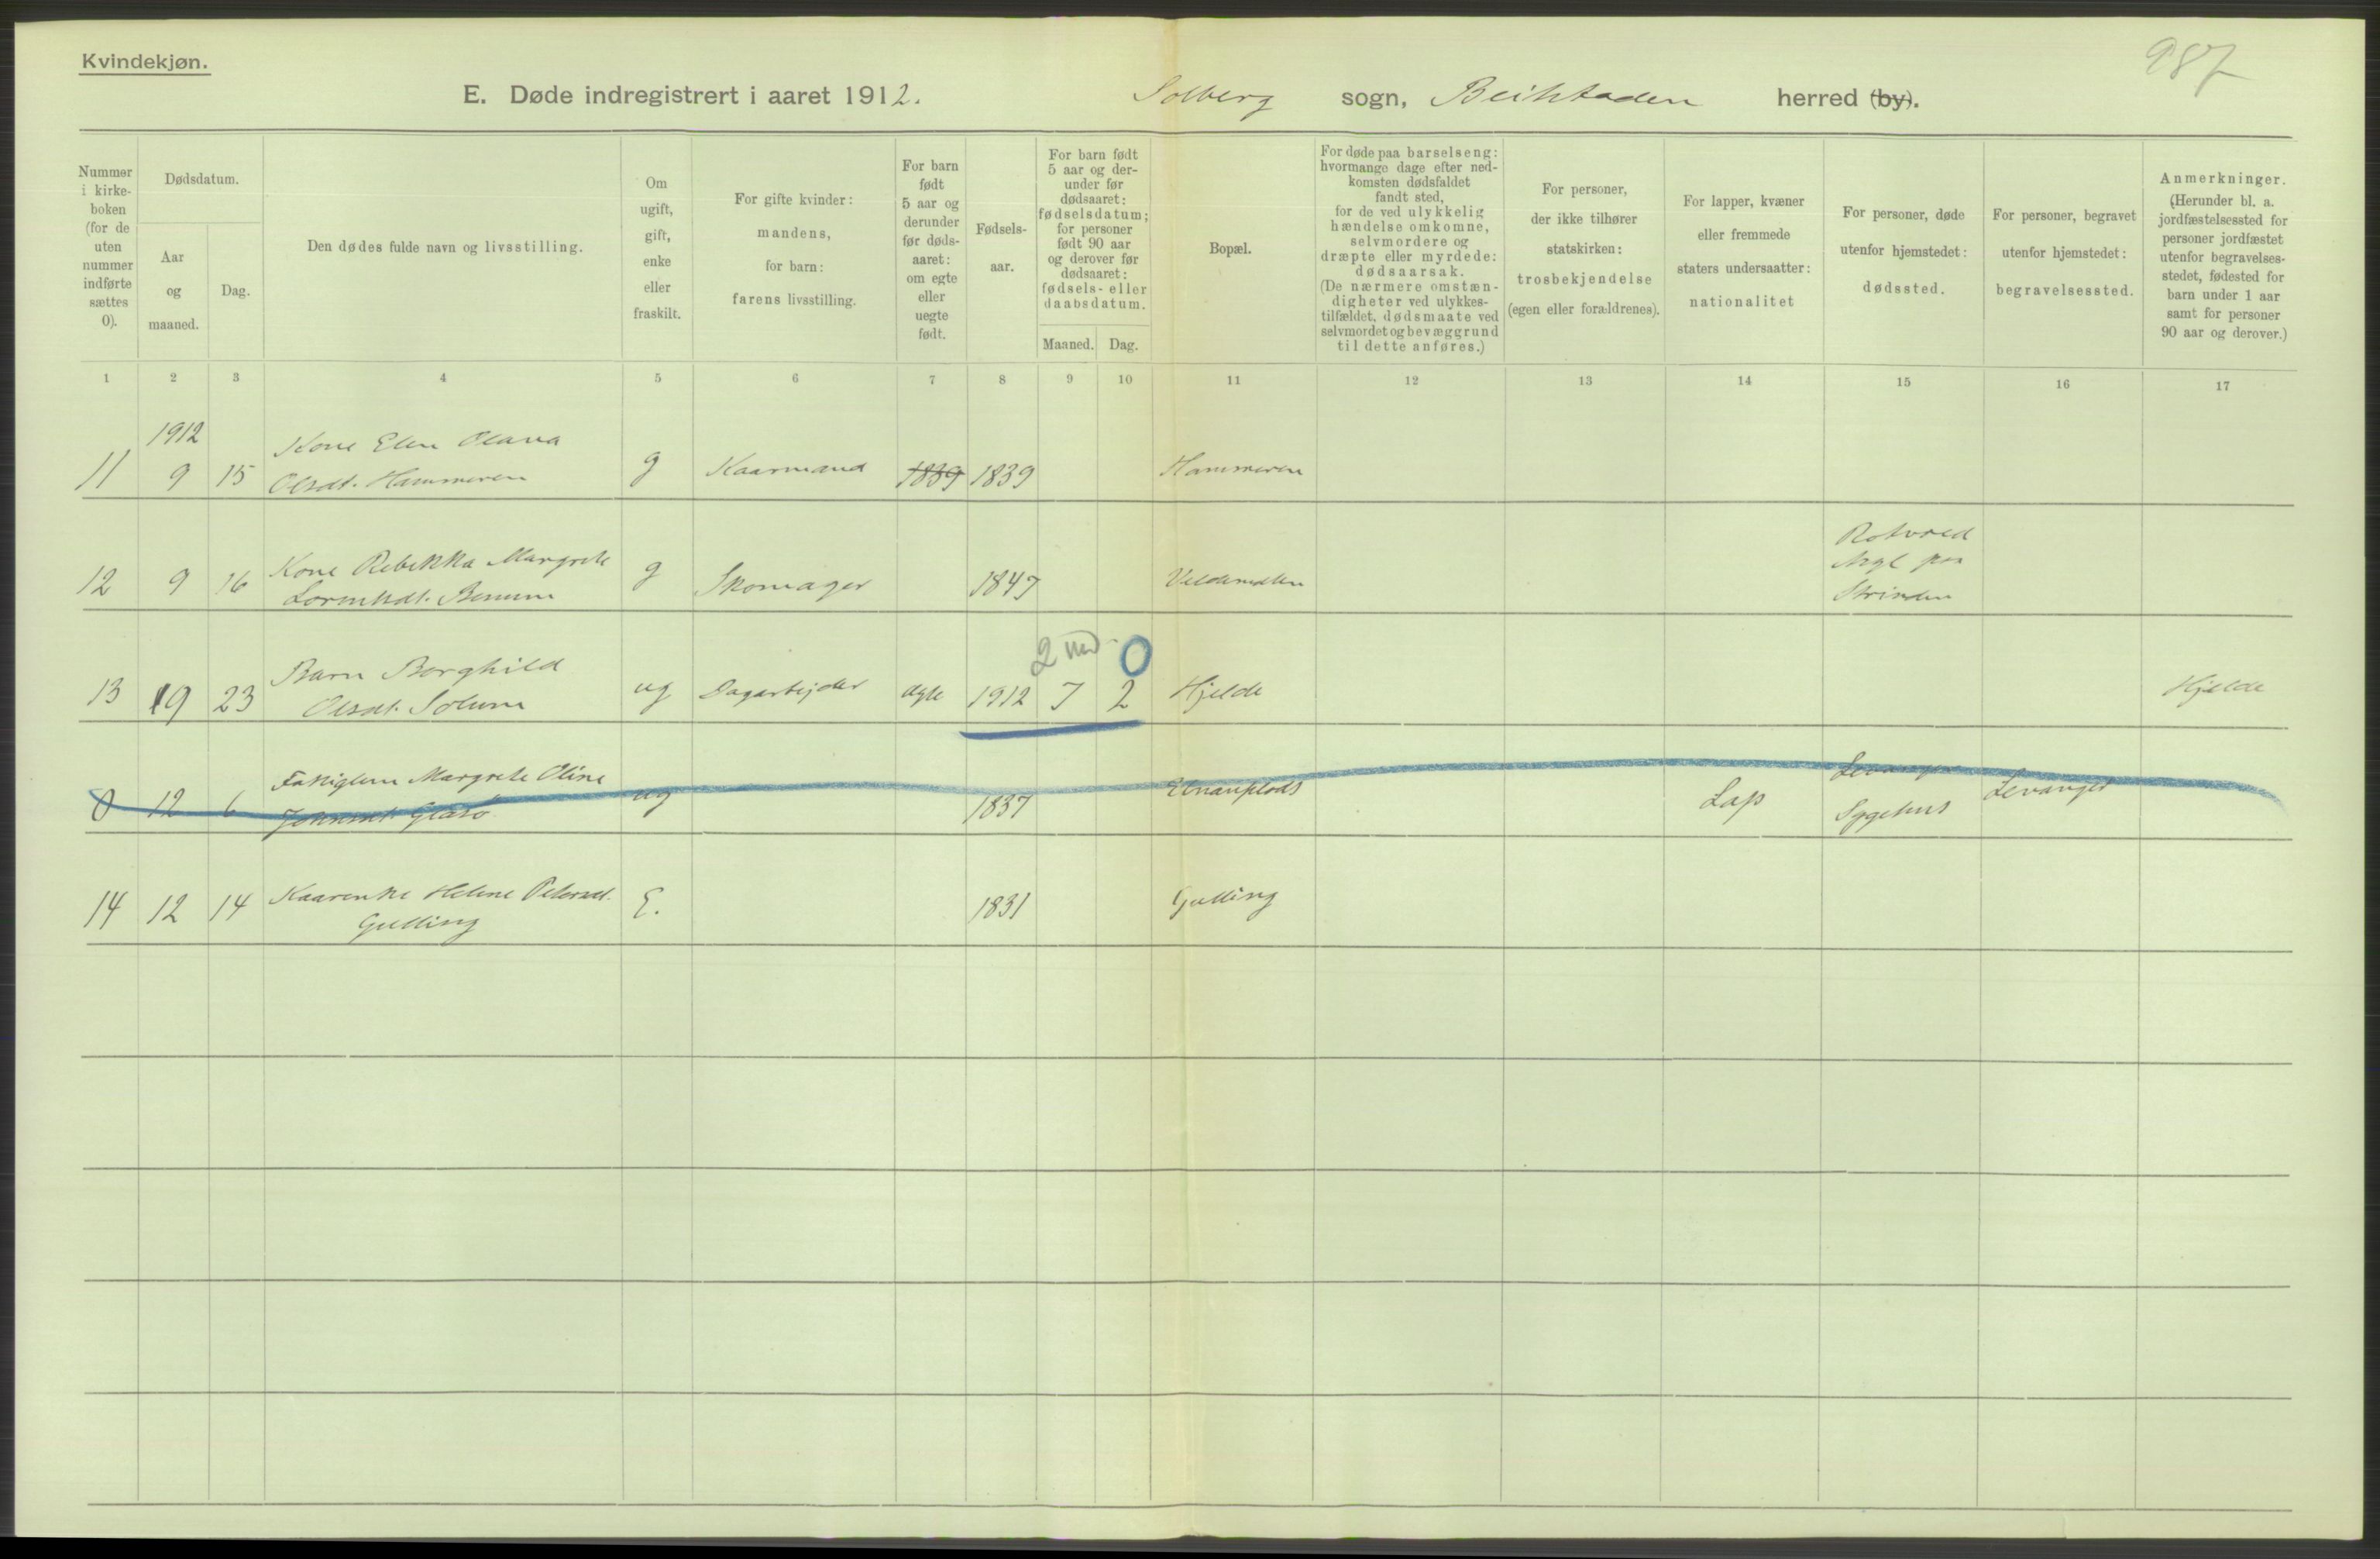 Kvindekjøn.
987
E. Døde indregistrert i aaret 1912. Solberg sogn, Beitstaden herred (by).
Nummer i kirke-boken (for de uten nummer indførte sættes 0).
Dødsdatum.
Aar og maaned.
Dag.
Den dødes fulde navn og livsstilling.
Om ugift, gift, enke eller fraskilt.
For gifte kvinder: mandens, for barn: farens livsstilling.
For barn født 5 aar og derunder før døds-aaret: om egte eller uegte født.
Fødsels-aar.
For barn født 5 aar og der-under før dødsaaret: fødselsdatum; for personer født 90 aar og derover før dødsaaret: fødsels- eller daabsdatum.
Maaned. Dag.
Bopæl.
For døde paa barselseng: hvormange dage efter ned-komsten dødsfaldet fandt sted, for de ved ulykkelig hændelse omkomne, selvmordere og dræpte eller myrdede: dødsaarsak. (De nærmere omstæn-digheter ved ulykkes-tilfældet, dødsmaate ved selvmordet og bevæggrund til dette anføres.)
For personer, der ikke tilhører statskirken: trosbekjendelse (egen eller forældrenes).
For lapper, kvæner eller fremmede staters undersaatter: nationalitet
For personer, døde utenfor hjemstedet: dødssted.
For personer, begravet utenfor hjemstedet: begravelsessted.
Anmerkninger. (Herunder bl. a. jordfæstelsessted for personer jordfæstet utenfor begravelses-stedet, fødested for barn under 1 aar samt for personer 90 aar og derover.)
1 2 3 4 5 6 7 8 9 10 11 12 13 14 15 16 17
1912
Kone Elen Olava
11 9 15 Olsdt. Hammeren g Kaarmand 1839 1839 Hammeren
Kone Rebekka Margrete
12 9 16 g Skomager 1847 Strinden
2 md. 0
Barn Borghild
13 9 23 Olsdt. Solum ug Dagarbejder ægte 1912 7 2 Hjelde Hjelde
Margrete Oline Levanger
0 12 6 ug 1837 Lap Sygehus Levanger
14 12 14 Helene Petersdt. E. 1831 Gulling
Gulling